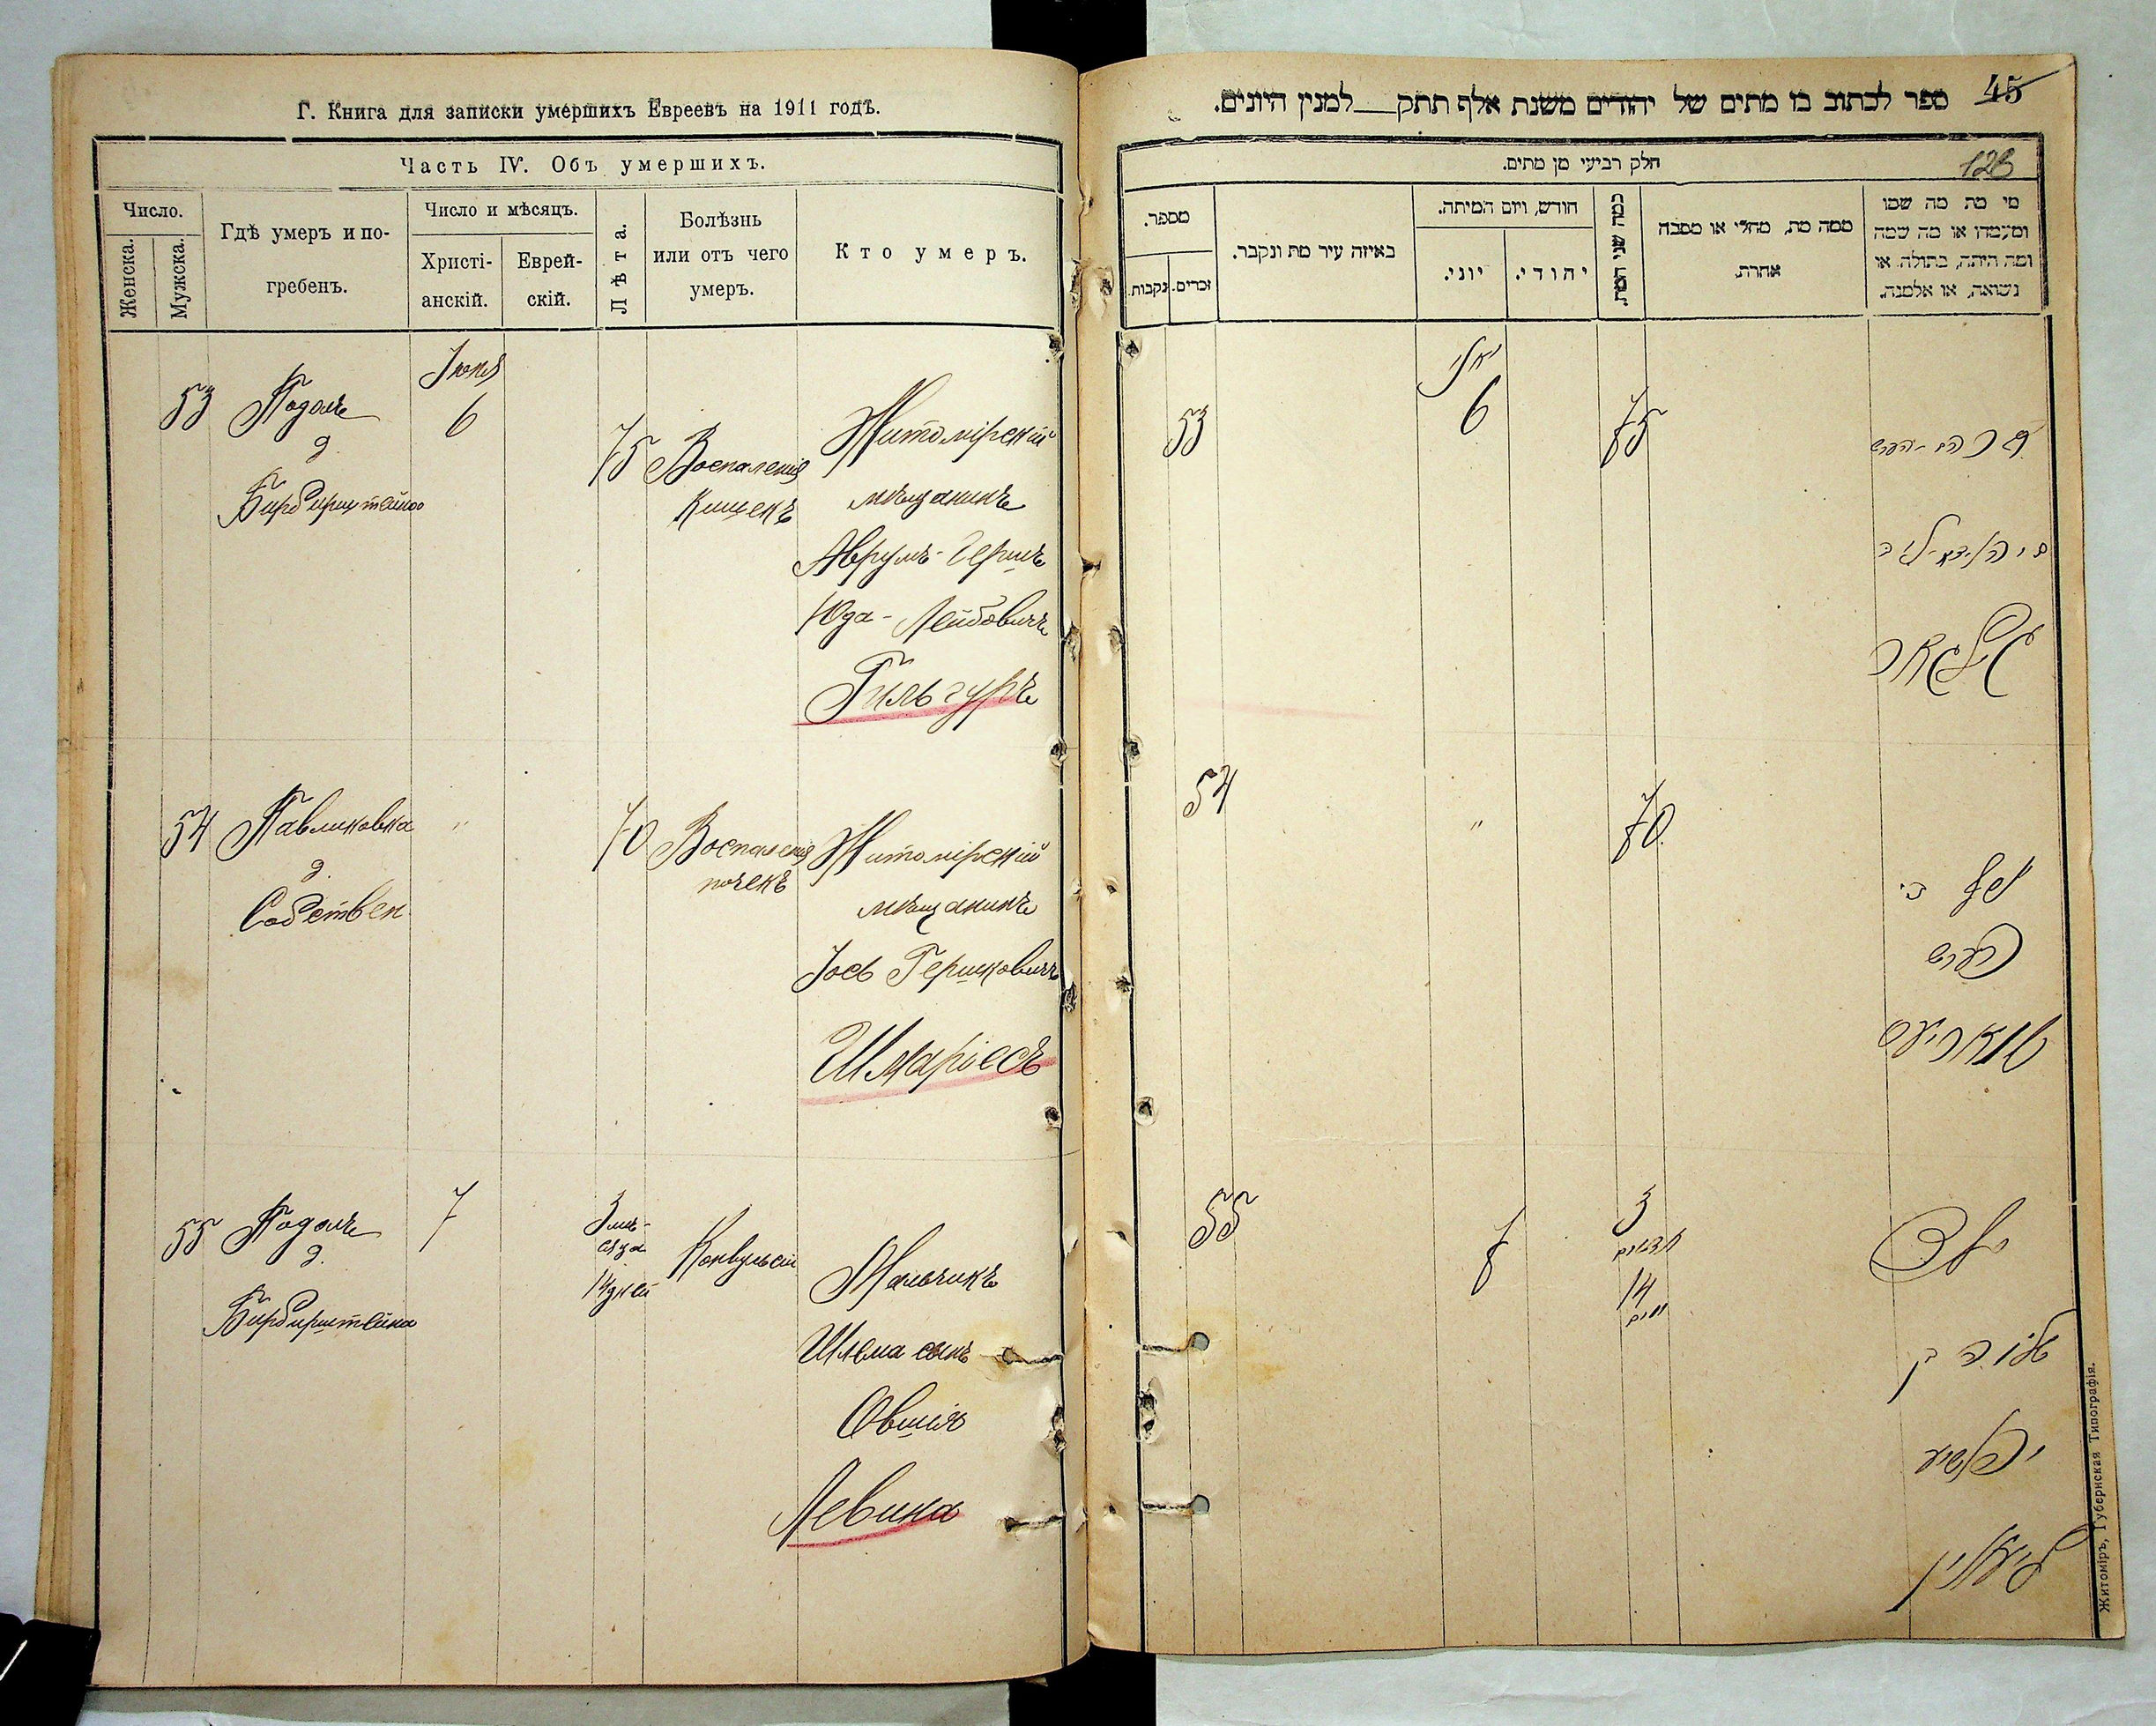 Г. Книга для записки умершихъ Евреевъ на 1911 годъ.
Часть IV. Объ умершихъ.
Число.
Женска.
Мужска.
Гдѣ умеръ и по-
гребенъ.
Число и мѣсяцъ.
Христі-
анскій.
Еврей-
скій.
Лѣта.
Болѣзнь
или отъ чего
умеръ.
Кто умеръ.
Іюля
53
Подолъ
д.
6
75
Воспаленія
Кишекъ
Житомірскій
мѣщанинъ
Аврумъ-Гершъ
Юда-Лейбовичъ
Гильгуръ
54
Павликовка
д.
Собствен
"
70
Воспаленія
почекъ
Житомірскій
мѣщанинъ
Іось Гершковичъ
Шмаріесъ
55
Подолъ
д.
7
3 мѣ-
сяца
14 дней
Конвульсіи
Мальчикъ
Шлема сынъ
Овшія
Левина
45
ספר לכתוב בו מתים של יהודים משנת אלף תתק__למנין היונים.
128
חלק רביעי מן מתים.
מספר.
נקבות
זכרים.
באיזה עיר מת ונקבר.
חודש, ויום המיתה.
יוני.
יהודי.
כמה שני המת.
ממה מת, מחלי או מסבה
אחרת.
מי מת מה שמו
ומעמדו או מה שמה
ומה היתה, בתולה או
נשואה, או אלמנה.
יולי
53
6
75
54
"
70
יוסף בר
הערש
שמאריעס
55
7
3
חדשים
14
ימים
ילד
שלמה בן
יהושיע
לעווין
Житоміръ, Губернская Типографія.